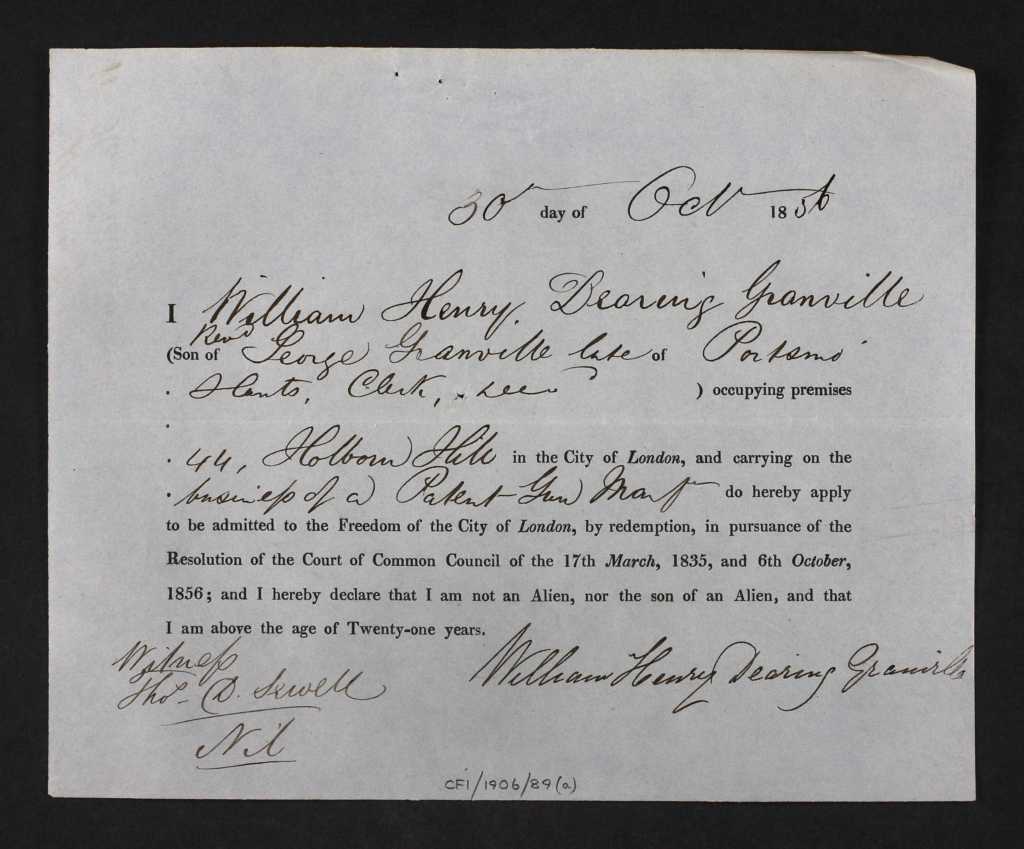 30 day of Oct 1856
I William Henry Dearing Granville
Revd
(Son of George Granville late of Portsmo
Hants, Clerk, Decd ) occupying premises
44, Holborn Hill in the City of London, and carrying on the
business of a Patent Gun Manf do hereby apply
to be admitted to the Freedom of the City of London, by redemption, in pursuance of the
Resolution of the Court of Common Council of the 17th March, 1835, and 6th October,
1856; and I hereby declare that I am not an Alien, nor the son of an Alien, and that
I am above the age of Twenty-one years.
Witness William Henry Dearing Granville
Thos D. Sewell
Nil
CF1/1906/89(a)